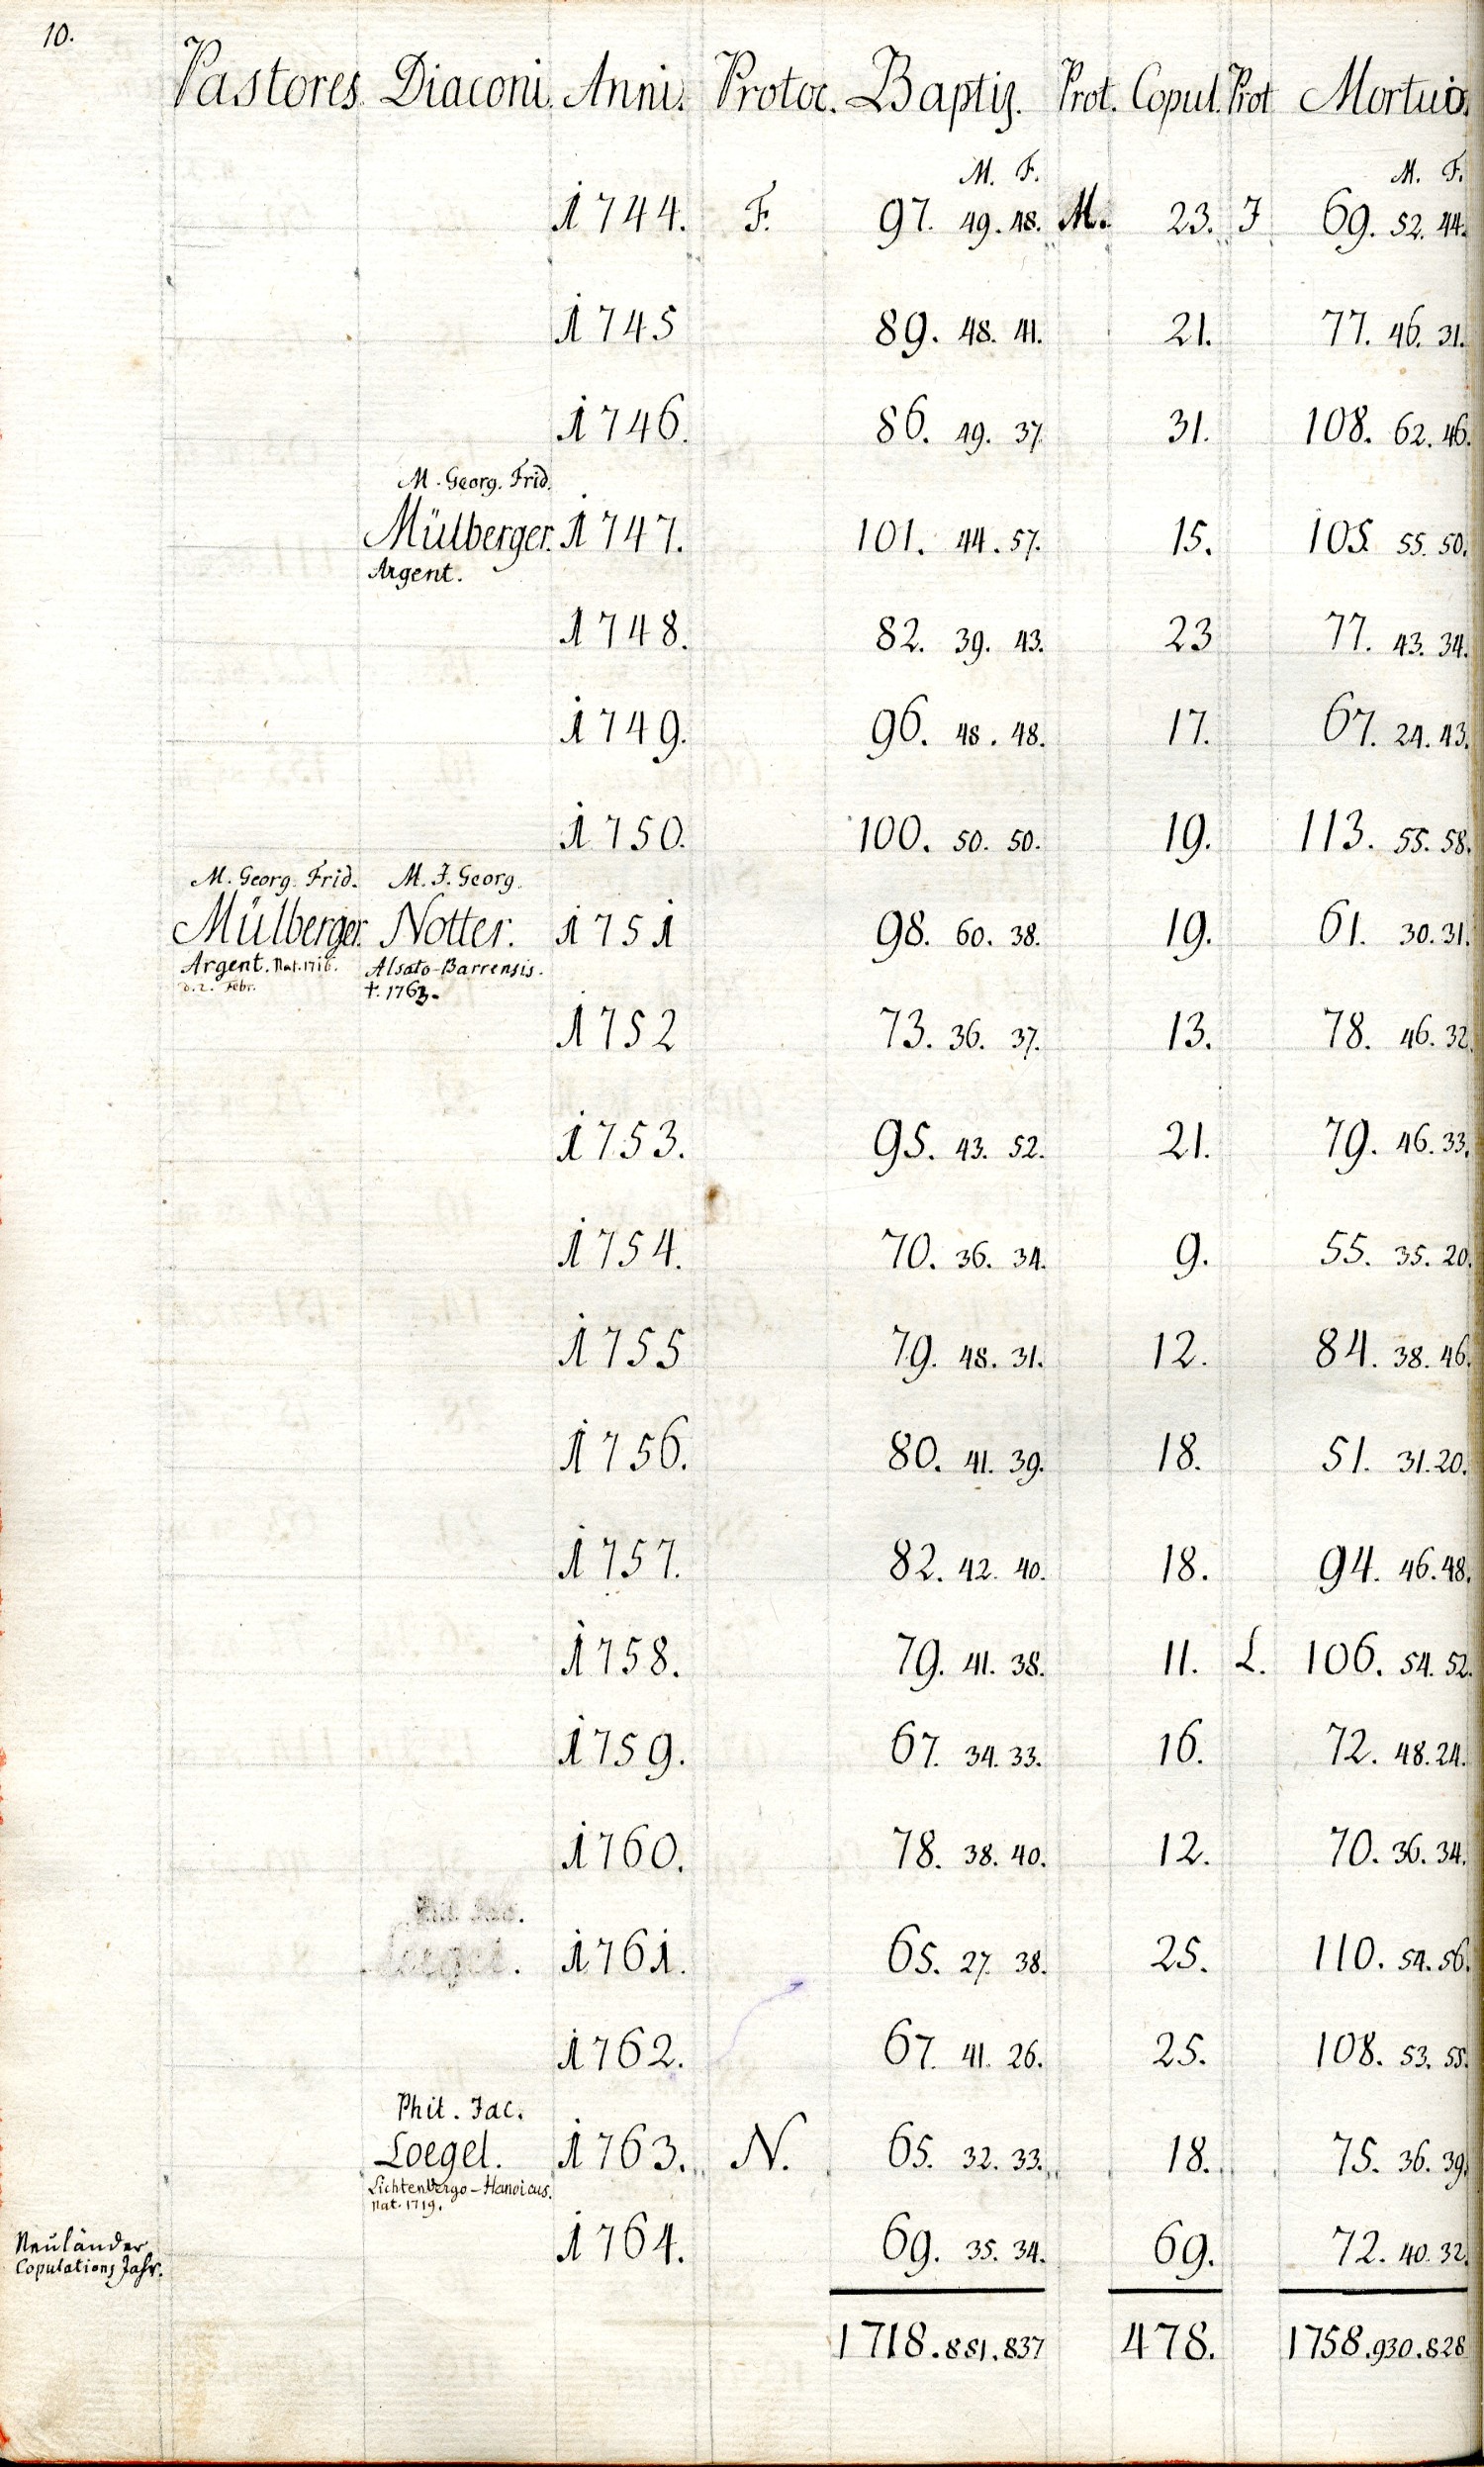 10.
Pastores. Diaconi. Anni. Protoc. Baptiz. Prot. Copul. Prot Mortui.
M. F. M. F.
1744. F. 97. 49. 48. M. 23. J 69. 52. 44.
1745 89. 48. 41. 21. 77. 46. 31.
1746. 86. 49. 37. 31. 108. 62. 46.
M. Georg. Frid.
Mülberger. 1747. 101. 44. 57. 15. 105. 55. 50.
Argent.
1748. 82. 39. 43. 23 77. 43. 34.
1749. 96. 48. 48. 17. 67. 24. 43.
1750. 100. 50. 50. 19. 113. 55. 58.
M. Georg. Frid. M. J. Georg.
Mülberger. Notter. 1751 98. 60. 38. 19. 61. 30. 31.
Argent. Nat. 1716. Alsato-Barrensis.
d. 2. Febr. †. 1763.
1752 73. 36. 37. 13. 78. 46. 32.
1753. 95. 43. 52. 21. 79. 46. 33.
1754. 70. 36. 34. 9. 55. 35. 20.
1755 79. 48. 31. 12. 84. 38. 46.
1756. 80. 41. 39. 18. 51. 31. 20.
1757. 82. 42. 40. 18. 94. 46. 48.
1758. 79. 41. 38. 11. L. 106. 54. 52.
1759. 67. 34. 33. 16. 72. 48. 24.
1760. 78. 38. 40. 12. 70. 36. 34.
1761. 65. 27. 38. 25. 110. 54. 56.
1762. 67. 41. 26. 25. 108. 53. 55.
Phil. Jac.
Loegel. 1763. N. 65. 32. 33. 18. 75. 36. 39.
Lichtenbergo-Hanoicus.
Nat. 1719.
Neuländer 1764. 69. 35. 34. 69. 72. 40. 32.
Copulations Jahr.
1718. 881. 837 478. 1758. 930. 828